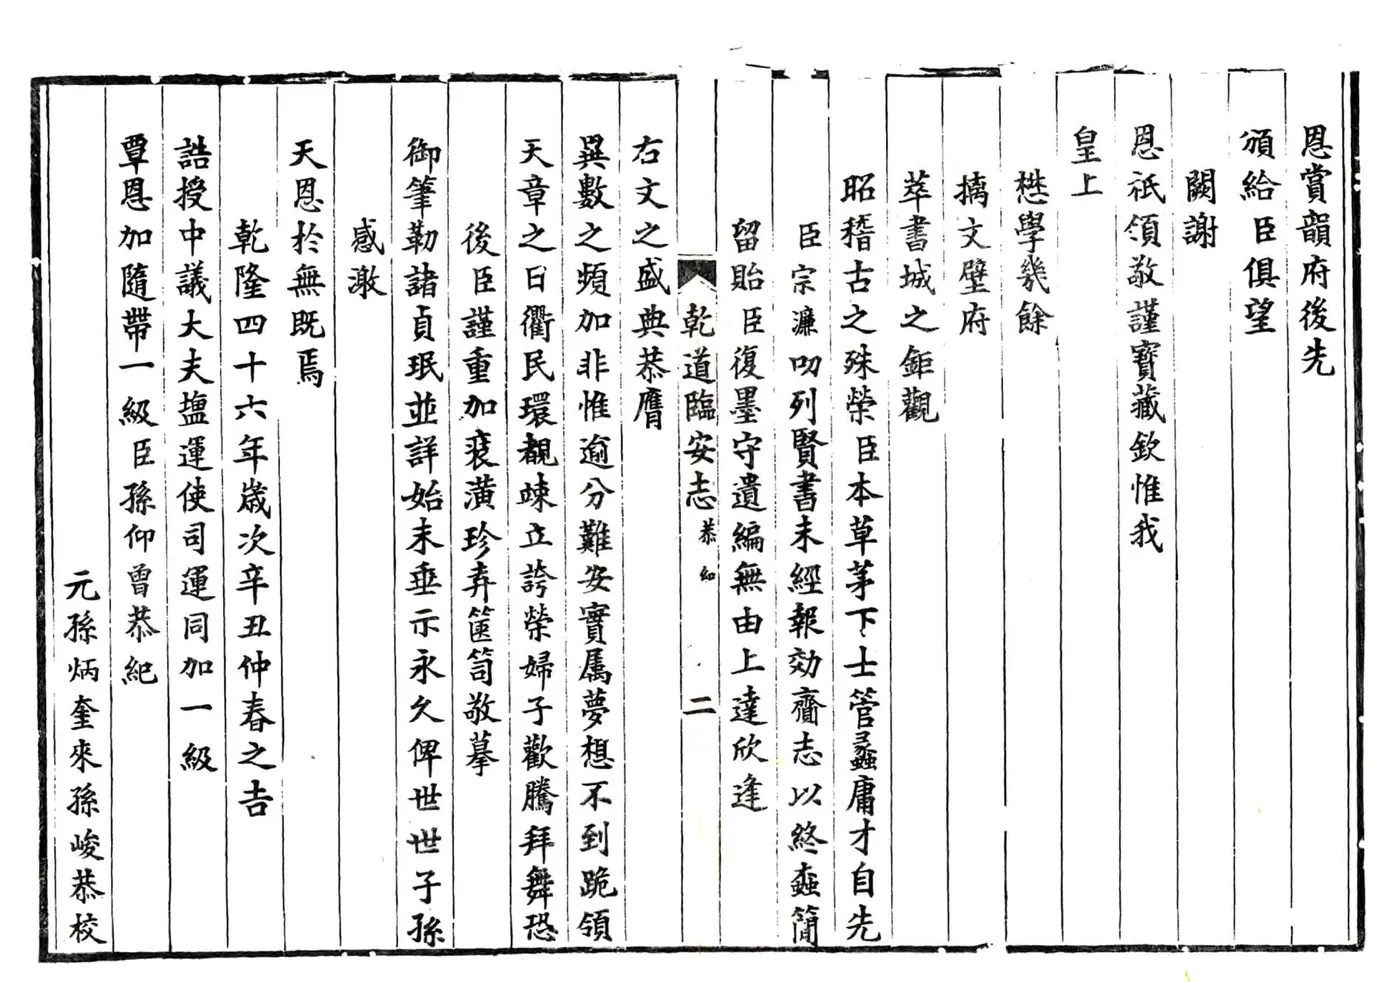 恩賞韻府後先
頒給臣俱望
闕謝
恩祇領敬謹寶藏欽惟我
皇上
懋學幾餘
摛文壁府
萃書城之鉅觀
昭稽古之殊榮臣本草茅下士管蠡庸才自先
臣宗濂叨列賢書未經報効齎志以終蠧簡
留貽臣復墨守遺編無由上達欣逢
乾道臨安志 恭紀 二
右文之盛典恭膺
異數之頻加非惟逾分難安實属夢想不到跪領
天章之日衢民環覩竦立誇榮婦子歡騰拜舞恐
後臣謹重加裒潢珍弆篋笥敬摹
御筆勒諸貞珉並詳始末垂示永久俾世世子孫
感激
天恩於無既焉
乾隆四十六年歲次辛丑仲春之吉
誥授中議大夫塩運使司運同加一級
覃恩加隨帶一級臣孫仰曾恭紀
元孫炳奎來孫峻恭校